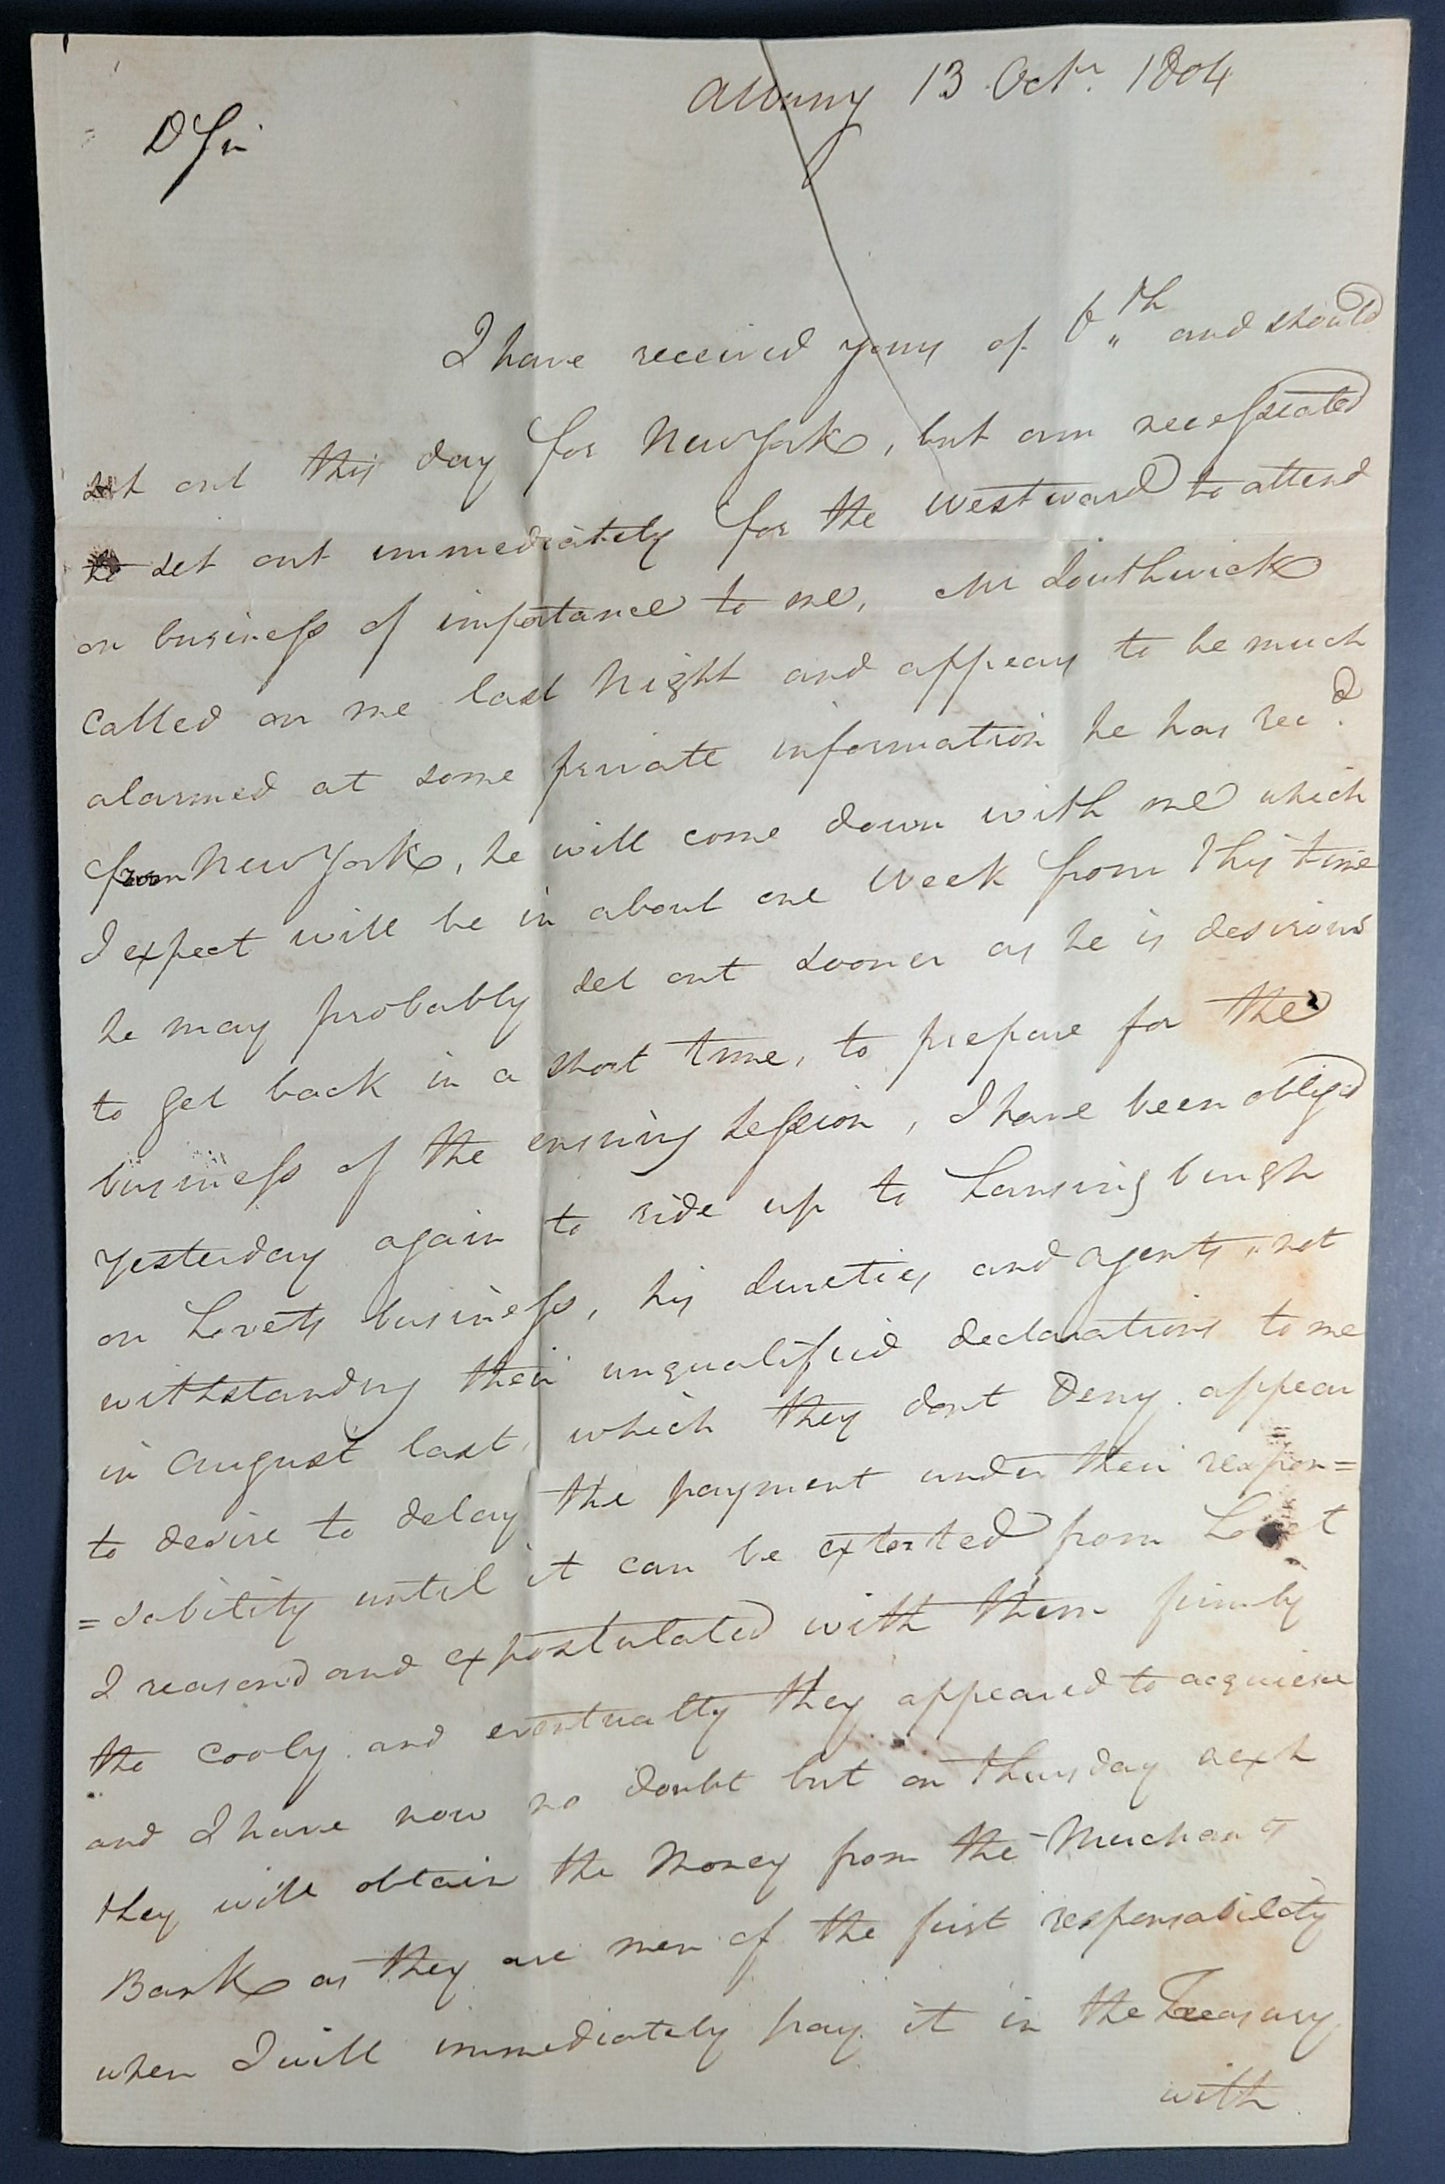 Albany 13 Octr. 1804
D Sir
I have received yours of 6th and should
set out this day for New York, but am necessiated
to set out immediately for the westward to attend
on business of importance to me, Mr Southwick
called on me last Night and appears to be much
alarmed at some private information he has recd.
from New York, he will come down with me which
I expect will be in about one Week from this time
he may probably set out sooner as he is desirous
to get back in a short time, to prepare for the
business of the ensuing session, I have been obliged
yesterday again to ride up to Lansingburgh
on Lovets business, his sureties and agents, not
withstanding their unqualified declarations to me
in August last, which they dont Deny appear
to desire to delay the payment under their respon=
=sability until it can be extorted from
I reasond and expostulated with them firmly
tho cooly and eventually they appeared to acquiesce
and I have now no doubt but on thursday next
they will obtain the Money from the Merchant
Bank as they are men of the first responsability
when I will immediately pay it in the Treasury
with